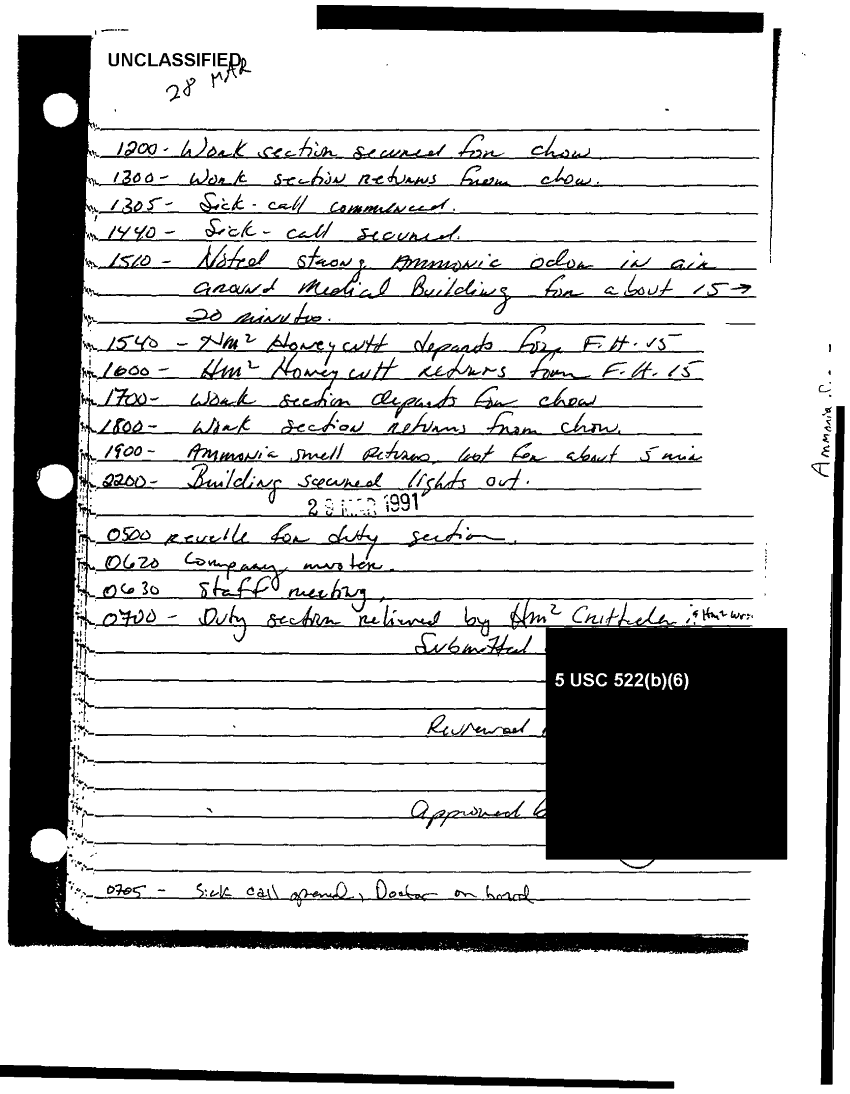 UNCLASSIFIED
28 MAR
1200- Work section secured for chow
1300- Work section returns from chow.
1305- Sick-call commenced.
1440- Sick-call secured.
1510- Noted strong Ammonic odor in air
around Medical Building for about 15 →
20 minutes.
1540 - Hm2 Honeycutt departs for F.H. 15
1600- Hm2 Honeycutt returns from F.H. 15
1700- Work section departs for chow
1800- Work section returns from chow.
1900- Ammonia smell returns, but for about 5 min
2200- Building secured lights out.
MAR 1991
0500 reveille for duty section.
0620 Company muster.
0630 Staff meeting.
0700- Duty section relieved by Hm2 & Hm2
Submitted
5 USC 522(b)(6)
Reviewed
Approved b
0705 - Sick call opened, Doctor on board
Ammonia